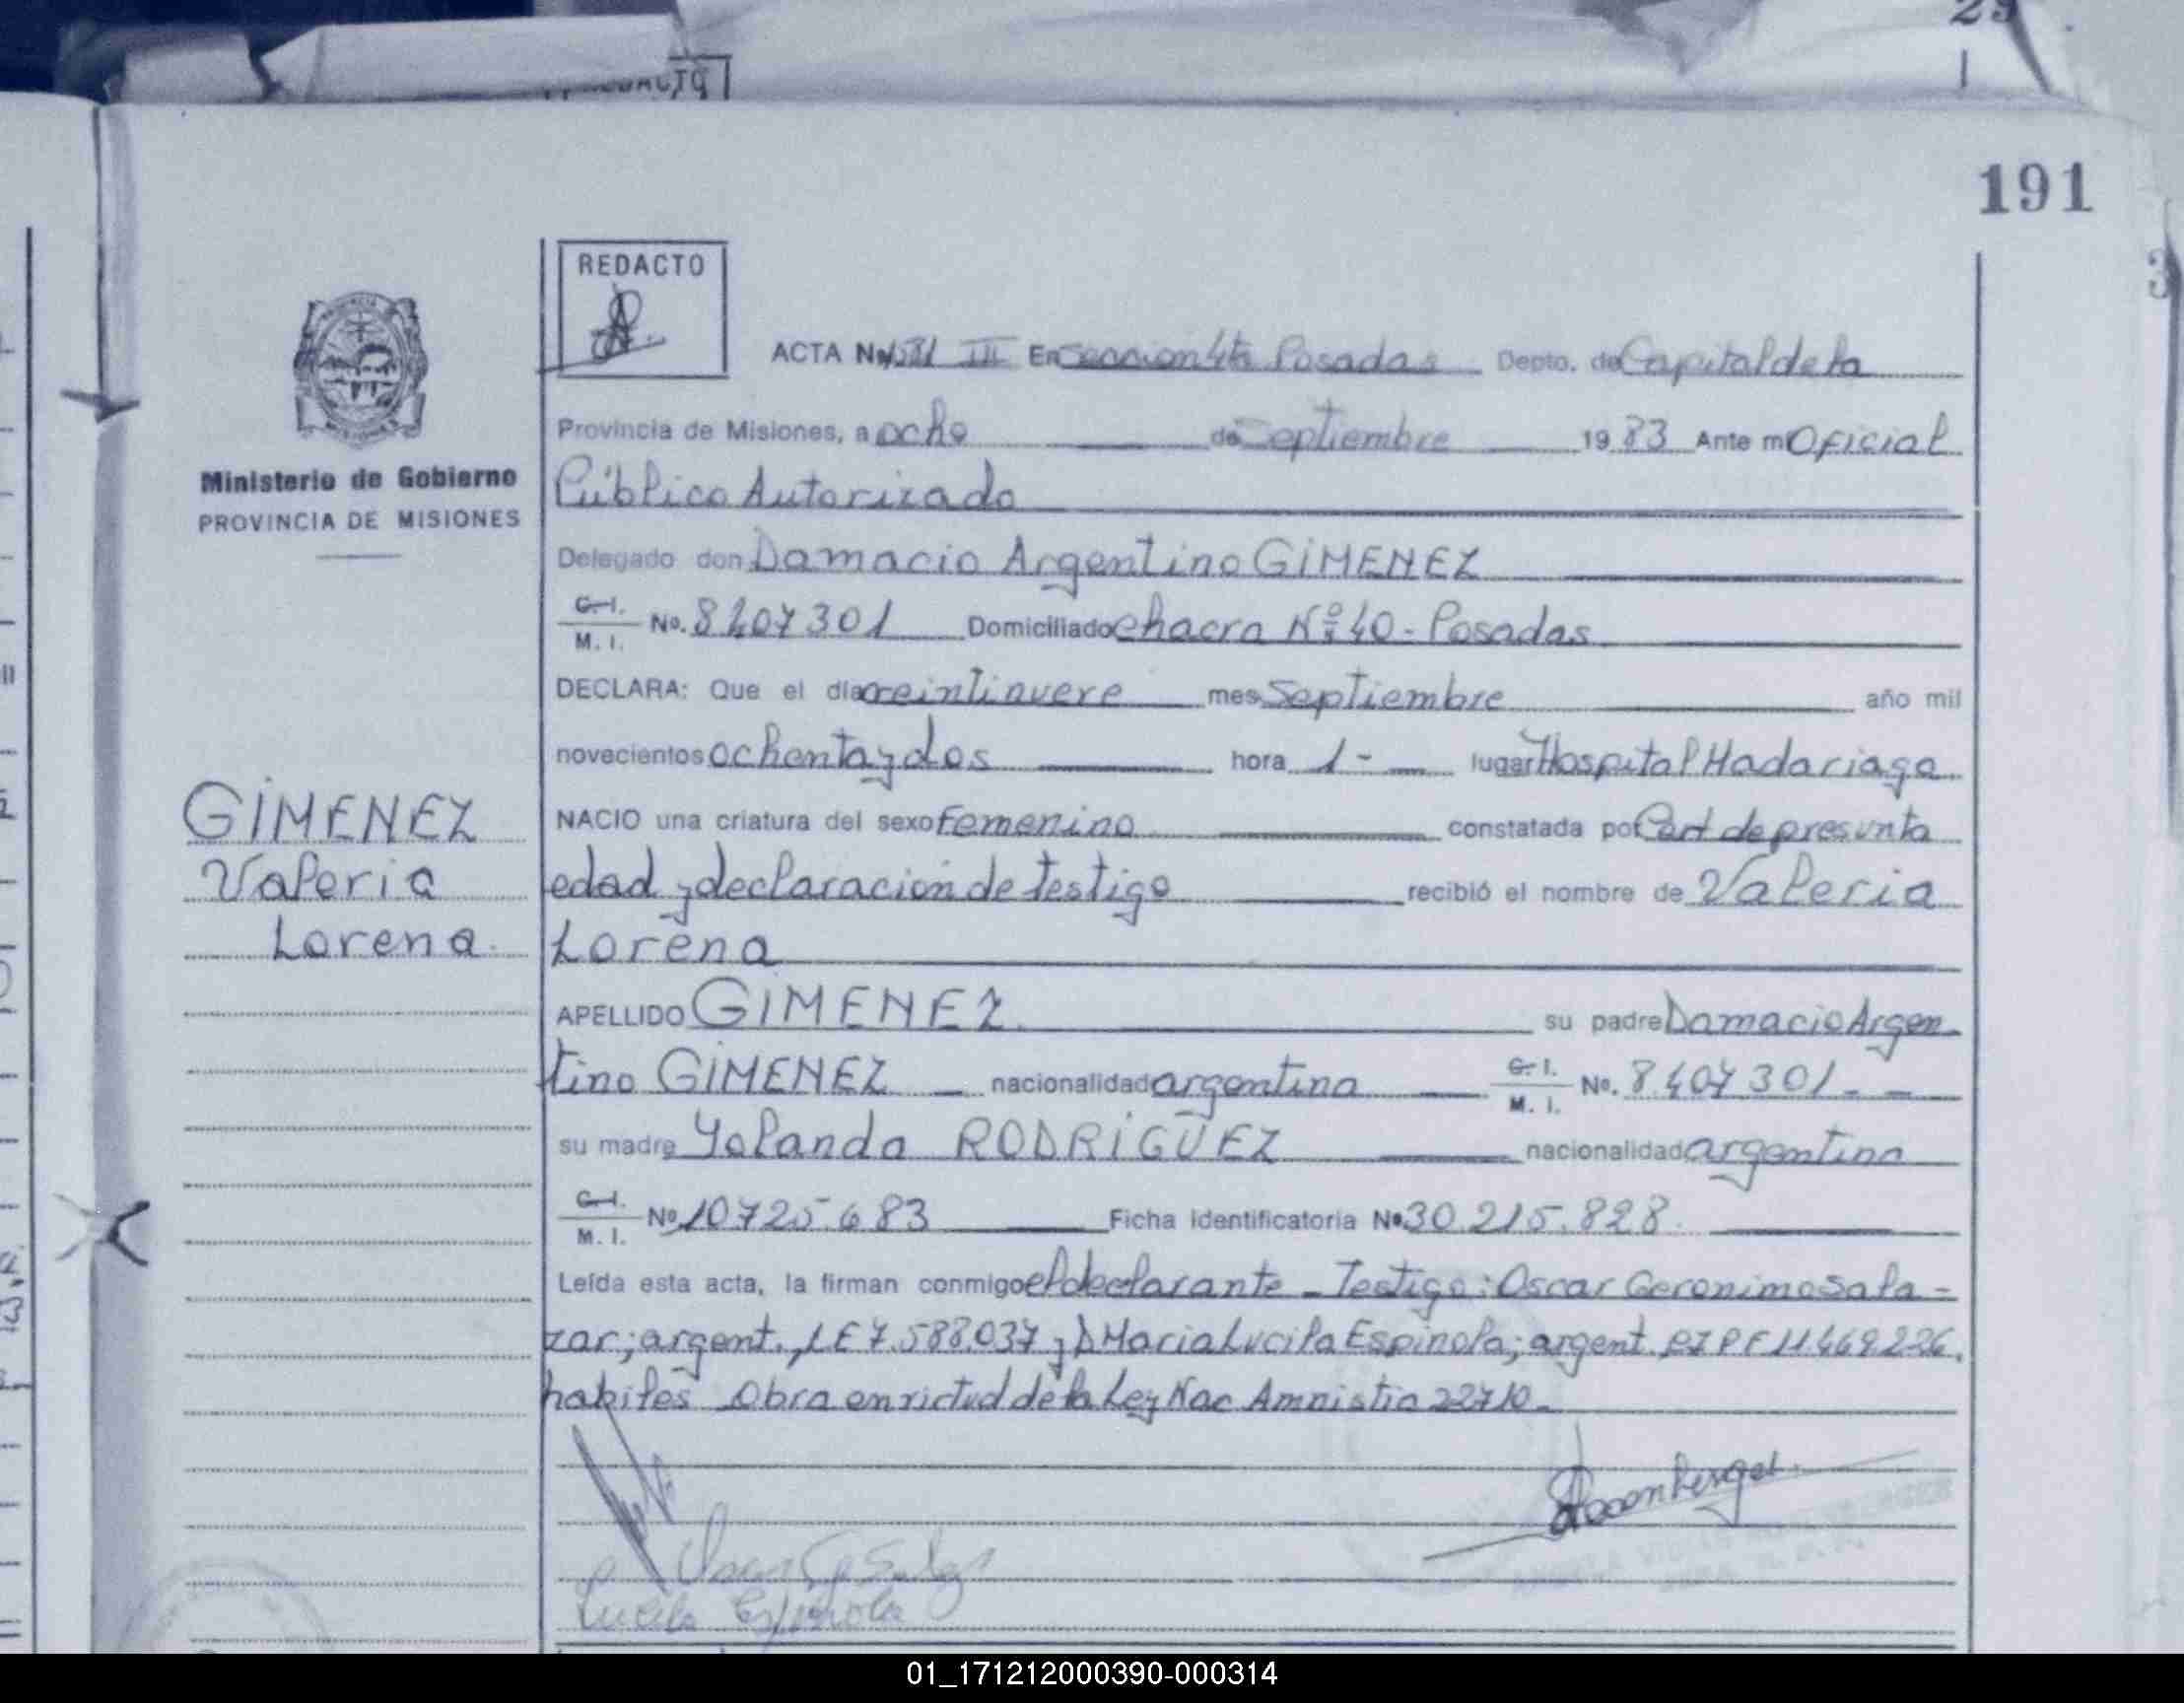 191
REDACTO
ACTA No III En Seccion 4ta Posadas Depto. de Capital de la
Provincia de Misiones, a ocho de Septiembre 1983 Ante mi Oficial
Ministerio de Gobierno
PROVINCIA DE MISIONES
Público Autorizado
Delegado don Damacio Argentino GIMENEZ
C. I. M. I. No. 8407301 Domiciliado chacra Nº 40 - Posadas
DECLARA: Que el día veintinueve mes Septiembre año mil
novecientos ochenta y dos hora 1 - lugar Hospital Madariaga
NACIO una criatura del sexo Femenino constatada por Cert de presunta
edad y declaracion de testigo recibió el nombre de Valeria
Lorena
GIMENEZ
Valeria
Lorena
APELLIDO GIMENEZ su padre Damacio Argen
tino GIMENEZ nacionalidad argentina C. I. M. I. No. 8.407 301 - -
su madre Yolanda RODRIGUEZ nacionalidad argentina
C. I. M. I. No 10725.683 Ficha Identificatoria No 30.215.828.
Leída esta acta, la firman conmigo el declarante - Testigo: Oscar Geronimo Sala-
zar; argent., LE 7.588.037 y D Maria Lucila Espinola; argent. CI PF 11469.226.
habiles Obra en virtud de la Ley Nac Amnistia 22710 -
Lucila Espinola
01_171212000390-000314